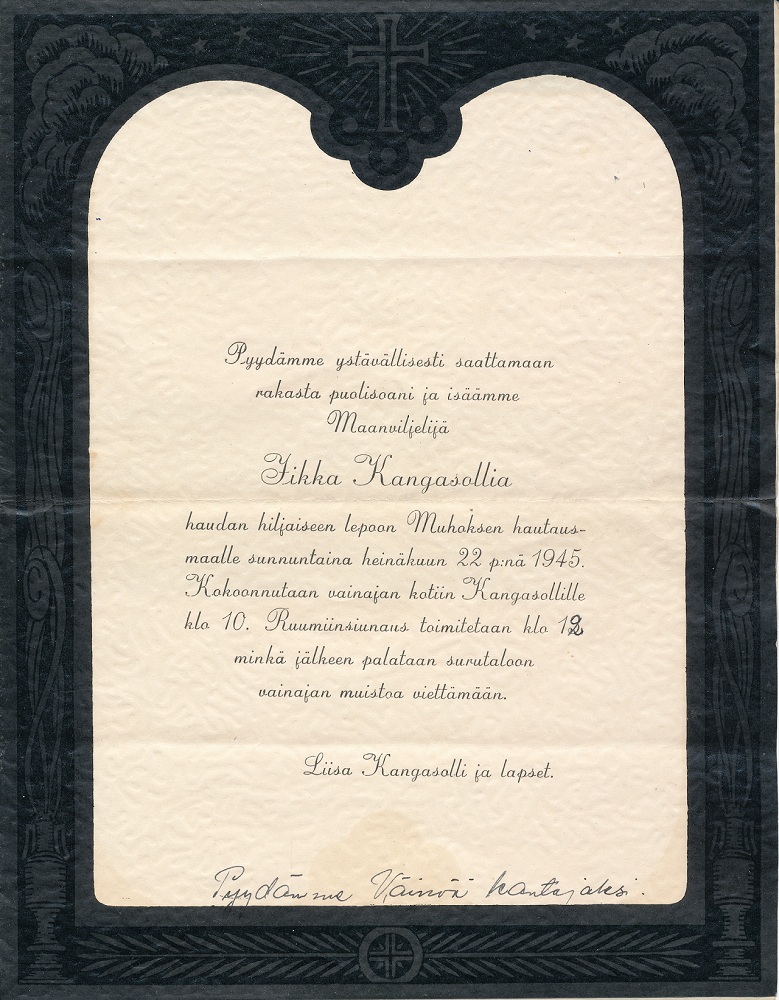 Pyydämme ystävällisesti saattamaan
rakasta puolisoani ja isäämme
Maanviljelijä
Iikka Kangasollia
haudan hiljaiseen lepoon Muhoksen hautaus-
maalle sunnuntaina heinäkuun 22 p:nä 1945.
Kokoonnutaan vainajan kotiin Kangasollille
klo 10. Ruumiinsiunaus toimitetaan klo 12
minkä jälkeen palataan surutaloon
vainajan muistoa viettämään.
Liisa Kangasolli ja lapset.
Pyydämme Väinöä kantajaksi.